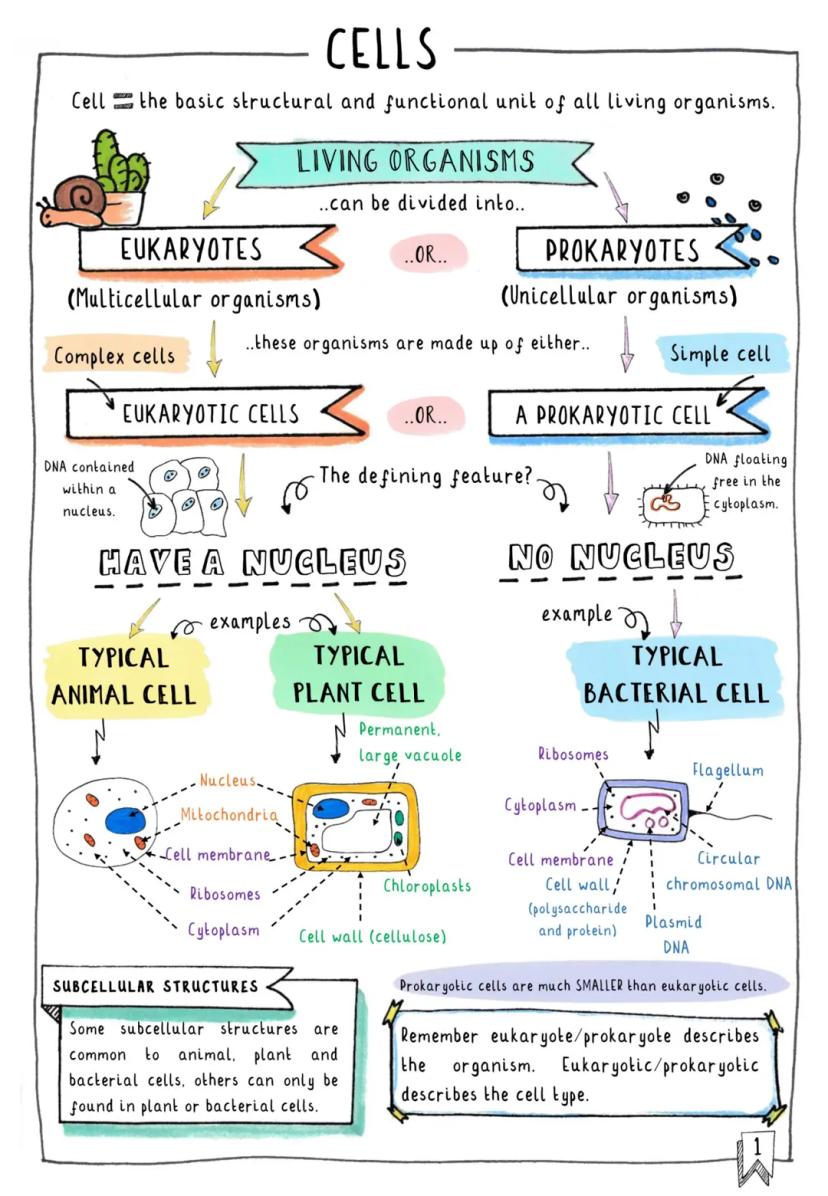 CELLS
Cell = the basic structural and functional unit of all living organisms.
LIVING ORGANISMS
..can be divided into..
EUKARYOTES
..OR..
PROKARYOTES
(Multicellular organisms)
(Unicellular organisms)
Complex cells
..these organisms are made up of either..
Simple cell
EUKARYOTIC CELLS
..OR..
A PROKARYOTIC CELL
DNA contained
within a
nucleus.
The defining feature?
DNA floating
free in the
cytoplasm.
HAVE A NUCLEUS
NO NUCLEUS
examples
example
TYPICAL
ANIMAL CELL
TYPICAL
PLANT CELL
TYPICAL
BACTERIAL CELL
Permanent,
large vacuole
Nucleus
Mitochondria
Cell membrane
Ribosomes
Cytoplasm
Chloroplasts
Cell wall (cellulose)
Ribosomes
Flagellum
Cytoplasm
Cell membrane
Cell wall
(polysaccharide
and protein)
Circular
chromosomal DNA
Plasmid
DNA
SUBCELLULAR STRUCTURES
Some subcellular structures are
common to animal, plant and
bacterial cells, others can only be
found in plant or bacterial cells.
Prokaryotic cells are much SMALLER than eukaryotic cells.
Remember eukaryote/prokaryote describes
the organism. Eukaryotic/prokaryotic
describes the cell type.
1